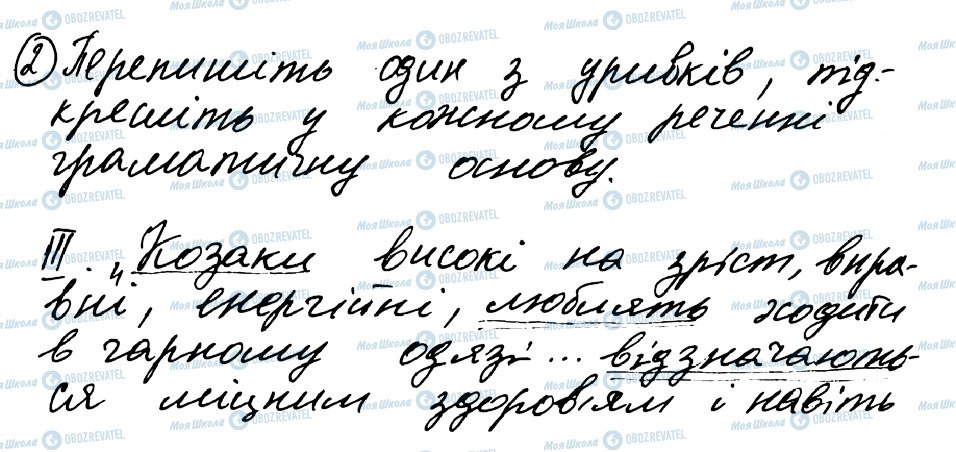 ② Перепишіть один з уривків, під-
кресліть у кожному реченні
граматичну основу.
III. „Козаки високі на зріст, впра-
вні, енергійні, люблять ходити
в гарному одязі... відзначають-
ся міцним здоров'ям і навіть